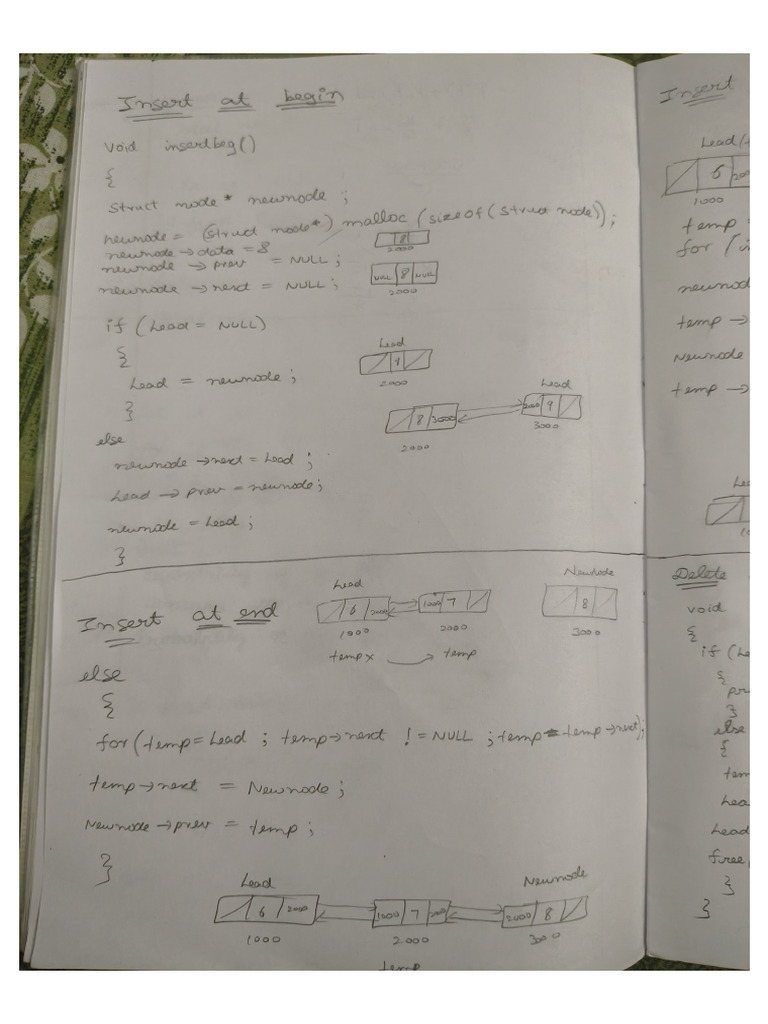 Insert at begin
void insertbeg()
{
struct node* newnode ;
newnode = (struct node*) malloc (sizeof(struct node));
newnode→data = 8
8
2000
newnode →prev = NULL;
newnode →next = NULL;
NULL 8 NULL
2000
if (Lead = NULL)
{
Lead = newnode ;
}
Lead
2000
Lead
8 3000
2000 9
2000
3000
else
newnode →next = Lead ;
Lead → prev = newnode;
newnode = Lead ;
}
Insert at end
Lead
6 2000
1000 7
1000
2000
temp x
temp
Newnode
8
3000
else
{
for(temp=Lead ; temp→next != NULL ; temp = temp→next);
temp→next = Newnode;
Newnode→prev = temp;
}
Lead
Newnode
6 2000
1000 7
2000 8
1000
2000
3000
temp
Insert
Lead
6
1000
temp =
for
newnod
temp →
Newnode
temp →
Lea
10
Delete
void
{
if (Le
{
pr
}
else
{
tem
Lea
Lead
free
}
}